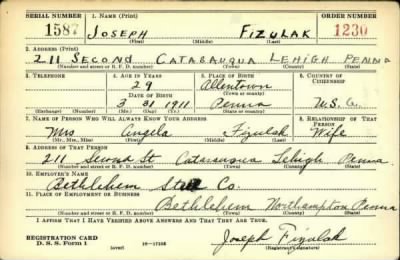 SERIAL NUMBER 1. NAME (Print) ORDER NUMBER
1587 JOSEPH FIZULAK 1230
(First) (Middle) (Last)
2. ADDRESS (Print)
211 SECOND CATASAUQUA LEHIGH PENNA
(Number and street or R. F. D. number) (Town) (County) (State)
3. TELEPHONE 4. AGE IN YEARS 5. PLACE OF BIRTH 6. COUNTRY OF CITIZENSHIP
29 Allentown
DATE OF BIRTH (Town or county)
3 31 1911 Penna U.S.A.
(Exchange) (Number) (Mo.) (Day) (Yr.) (State or country)
7. NAME OF PERSON WHO WILL ALWAYS KNOW YOUR ADDRESS 8. RELATIONSHIP OF THAT PERSON
Mrs Angela Fizulak Wife
(Mr., Mrs., Miss) (First) (Middle) (Last)
9. ADDRESS OF THAT PERSON
211 Second St Catasauqua Lehigh Penna
(Number and street or R. F. D. number) (Town) (County) (State)
10. EMPLOYER'S NAME
Bethlehem Steel Co.
11. PLACE OF EMPLOYMENT OR BUSINESS
Bethlehem Northampton Penna
(Number and street or R. F. D. number) (Town) (County) (State)
I AFFIRM THAT I HAVE VERIFIED ABOVE ANSWERS AND THAT THEY ARE TRUE.
REGISTRATION CARD
D. S. S. Form 1 (over) Joseph Fizulak
(Registrant's signature)